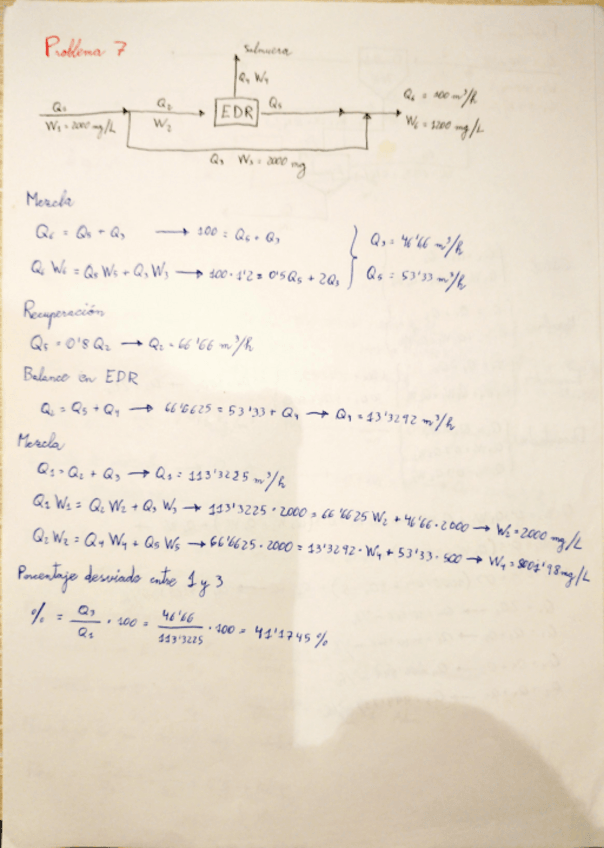 Problema 7
Salmuera
Q₄ W₄
Q₁
W₁ = 2000 mg/L
Q₂
W₂
EDR
Q₅
Q₆ = 100 m³/h
W₆ = 1200 mg/L
Q₃ W₃ = 2000 mg
Mezcla
Q₆ = Q₅ + Q₃ → 100 = Q₅ + Q₃
Q₆ W₆ = Q₅ W₅ + Q₃ W₃ → 100 · 1'2 = 0'5Q₅ + 2Q₃
Q₃ = 46'66 m³/h
Q₅ = 53'33 m³/h
Recuperación
Q₅ = 0'8 Q₂ → Q₂ = 66'66 m³/h
Balance en EDR
Q₂ = Q₅ + Q₄ → 66'6625 = 53'33 + Q₄ → Q₄ = 13'3292 m³/h
Mezcla
Q₁ = Q₂ + Q₃ → Q₁ = 113'3225 m³/h
Q₁ W₁ = Q₂ W₂ + Q₃ W₃ → 113'3225 · 2000 = 66'6625 W₂ + 46'66 · 2000 → W₂ = 2000 mg/L
Q₂ W₂ = Q₄ W₄ + Q₅ W₅ → 66'6625 · 2000 = 13'3292 · W₄ + 53'33 · 500 → W₄ = 8001'98 mg/L
Porcentaje desviado entre 1 y 3
% = Q₃/Q₁ · 100 = 46'66/113'3225 · 100 = 41'1745 %